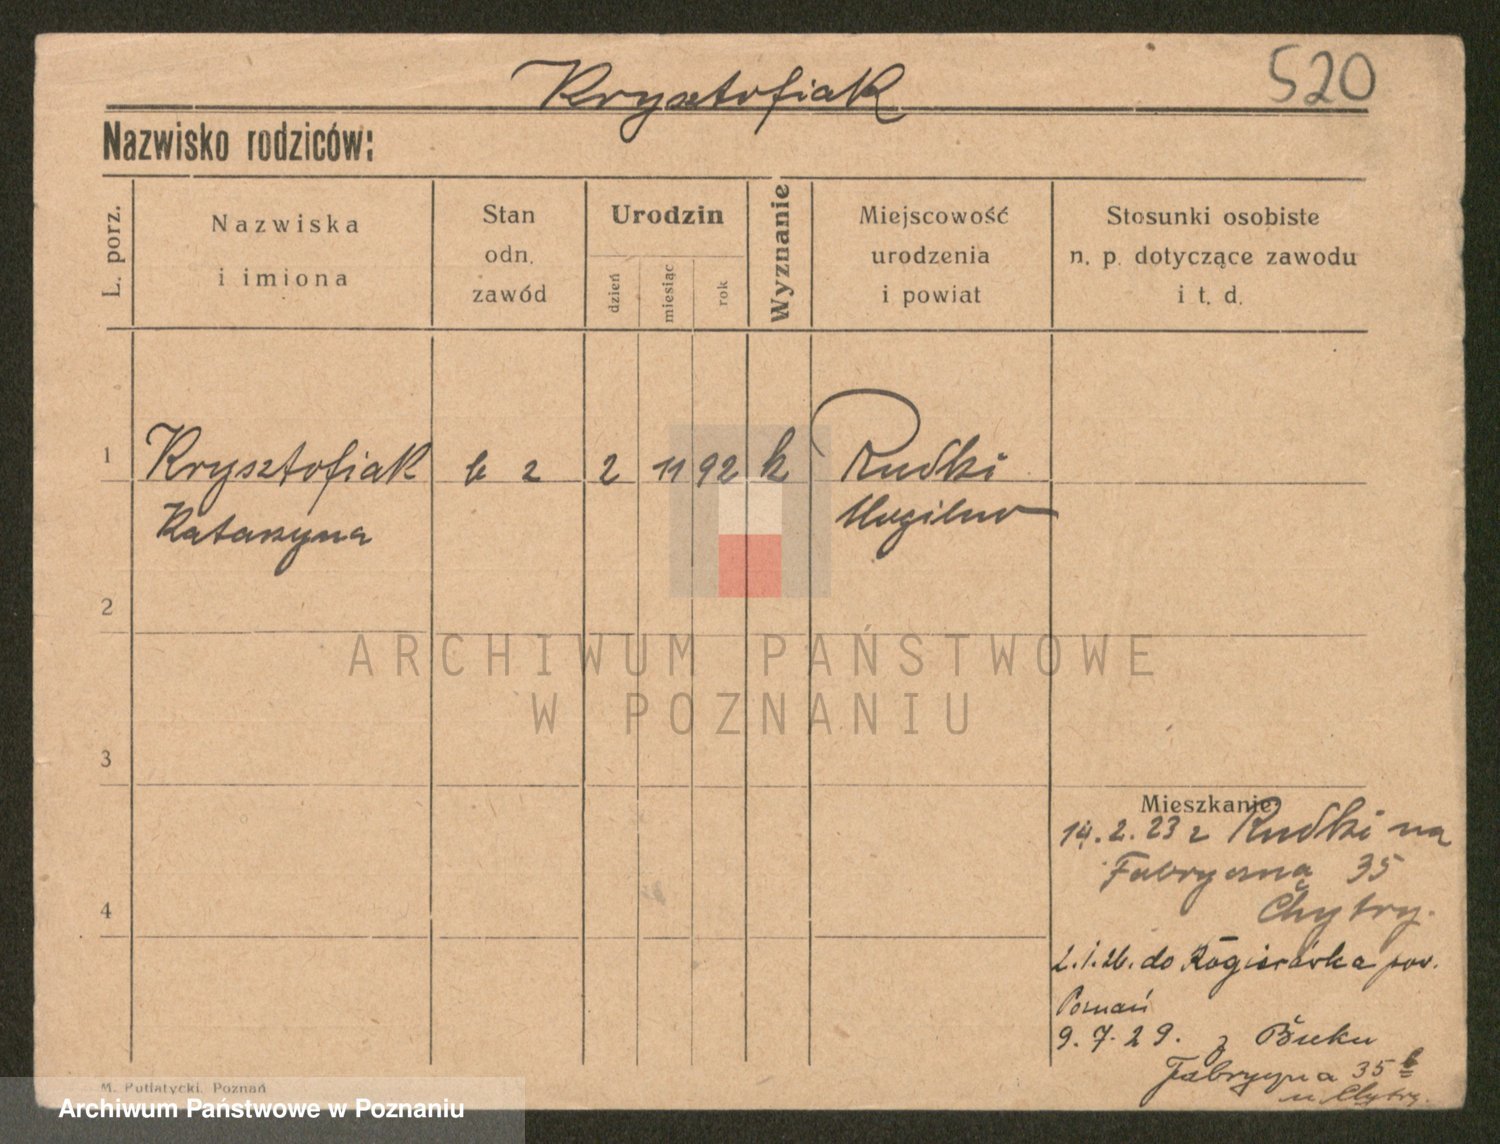 Krysztofiak
520
Nazwisko rodziców:
L. porz.
Nazwiska
i imiona
Stan
odn.
zawód
Urodzin
dzień
miesiąc
rok
Wyznanie
Miejscowość
urodzenia
i powiat
Stosunki osobiste
n. p. dotyczące zawodu
i t. d.
1 Krysztofiak 2 11 92 k Rudki
Katarzyna Mogilno
2
ARCHIWUM PAŃSTWOWE
W POZNANIU
3
Mieszkanie:
14. 2. 23 z Rudki na
Fabryczna 35
Chytry.
4
2. 1. 26. do Rogierówka pow.
Poznań
9. 7. 29. z Buku
Fabryczna 35 b
u Chytry.
M. Putiatycki, Poznań
Archiwum Państwowe w Poznaniu